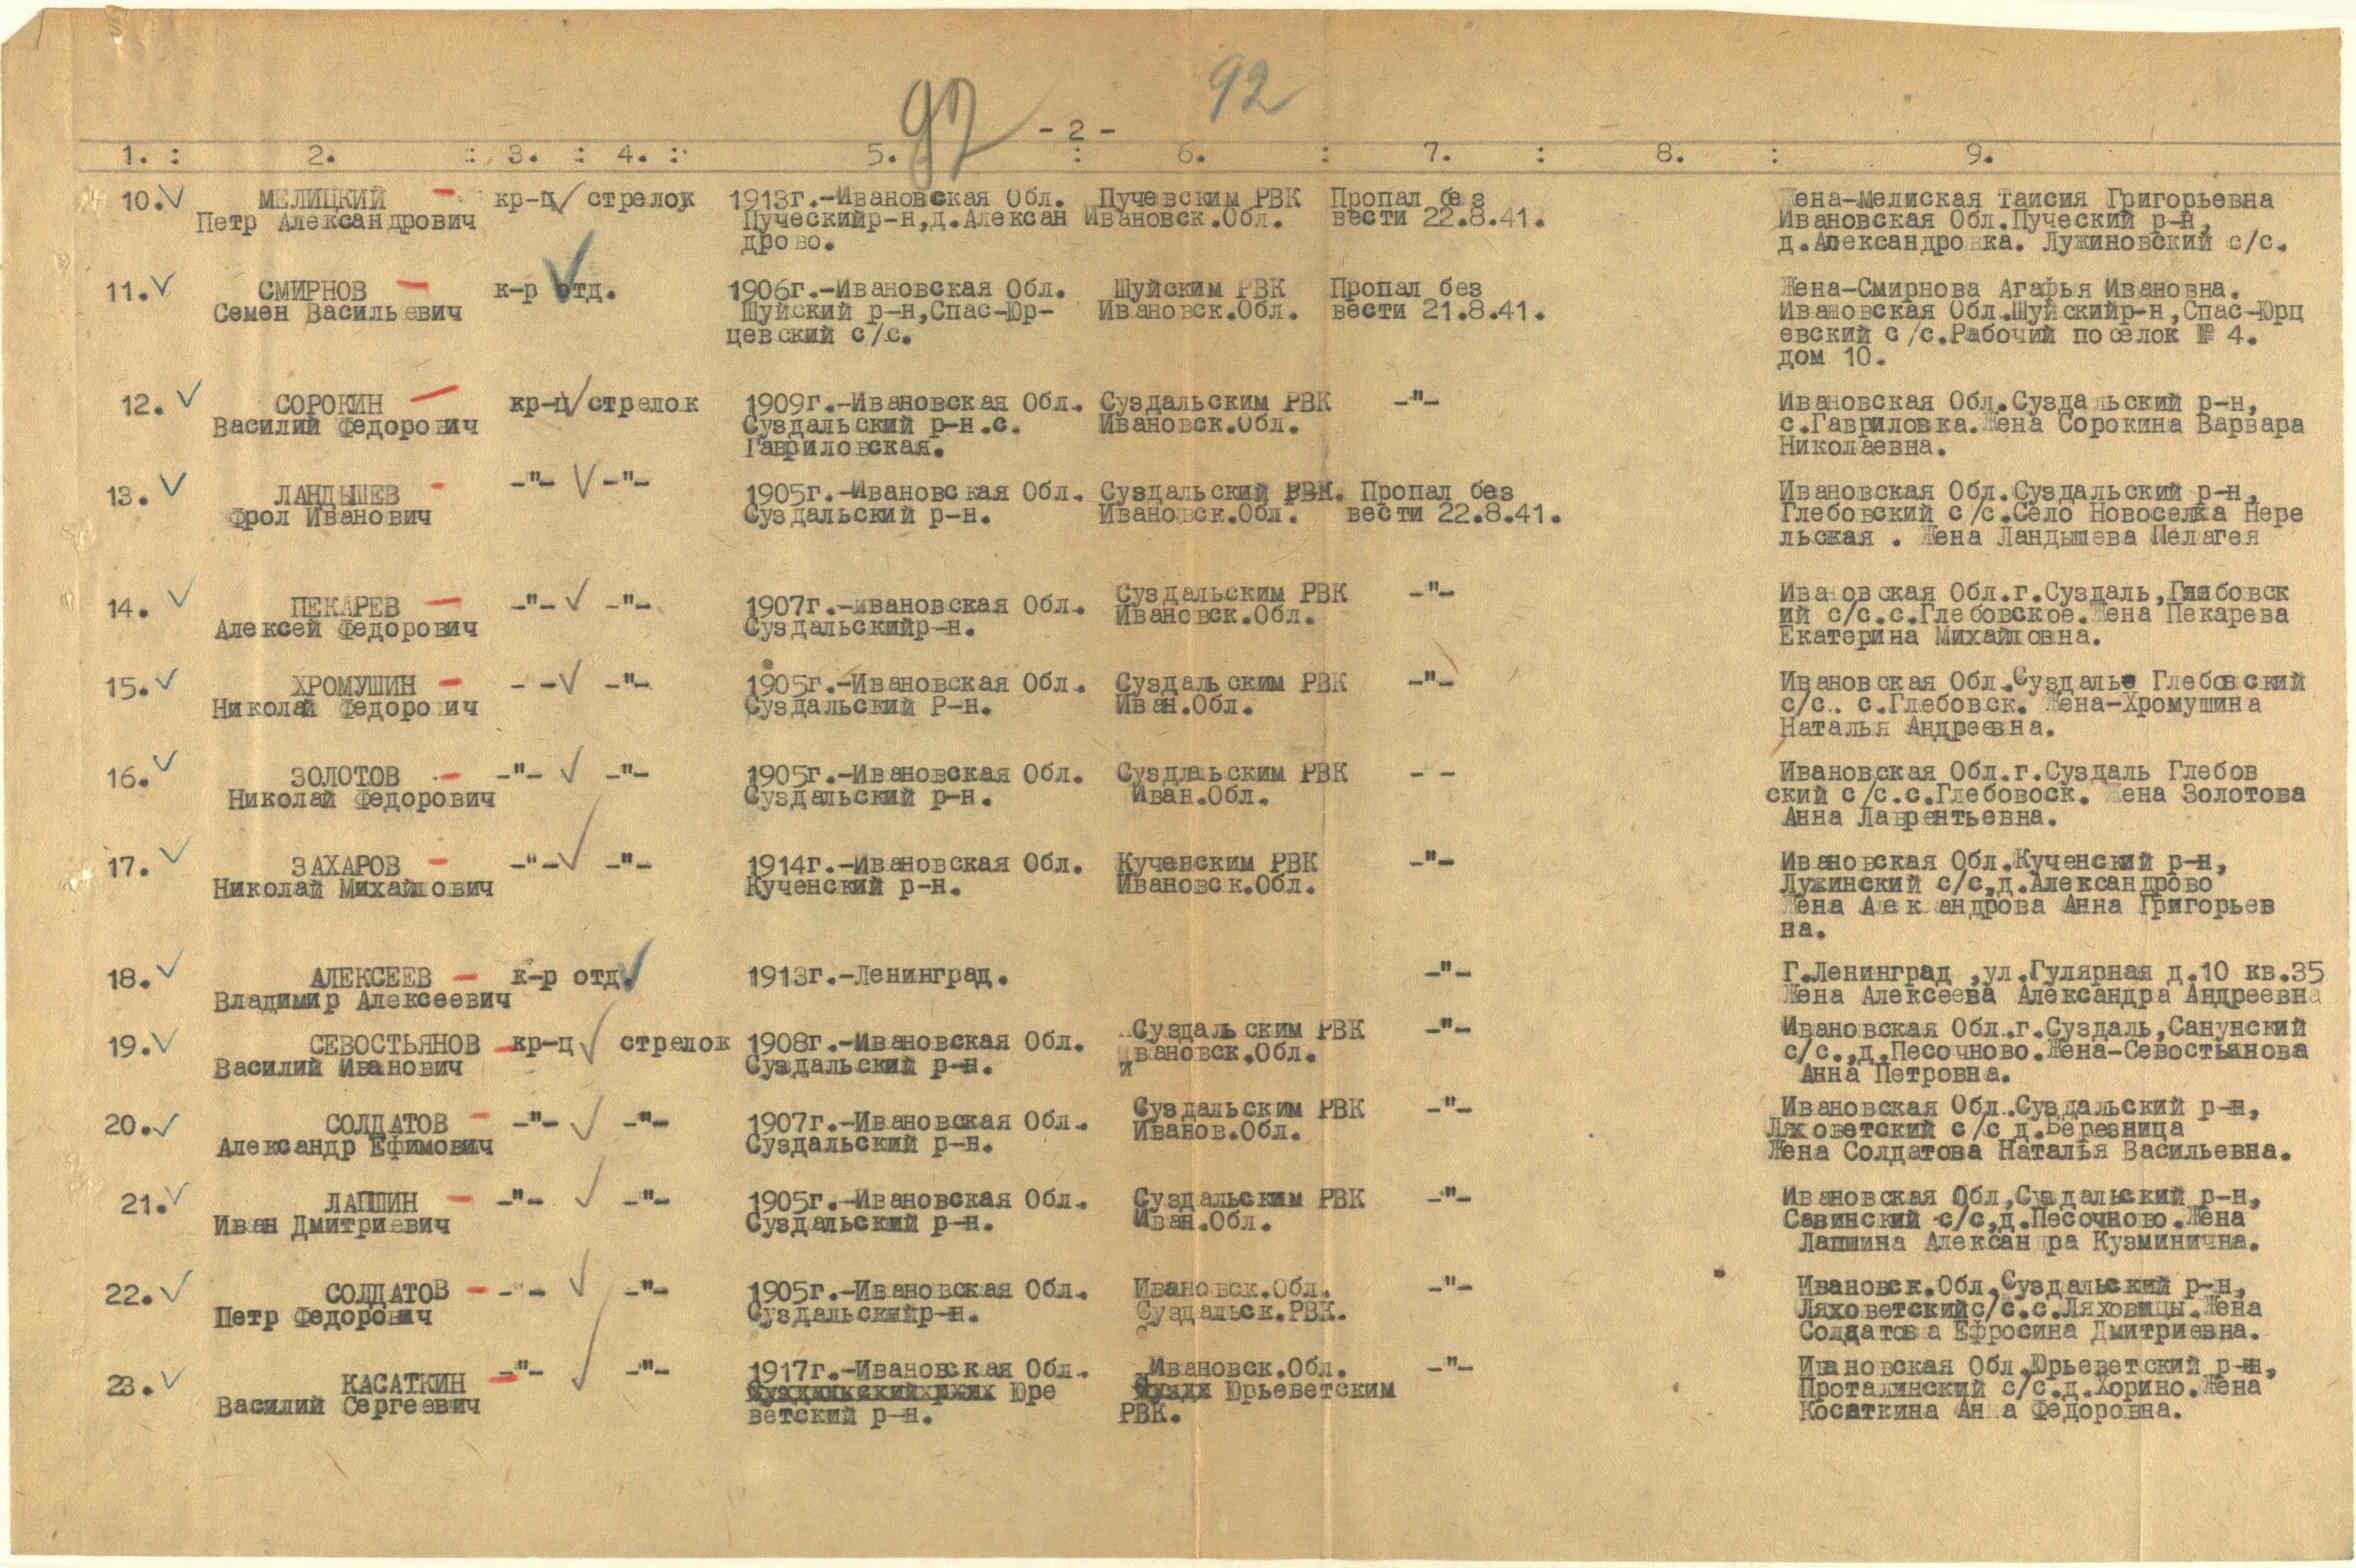 97 92
- 2 -
1. : 2. : 3. : 4. : 5. : 6. : 7. : 8. : 9.
10. МЕЛИЦКИЙ - кр-ц стрелок 1913г.-Ивановская Обл. Пучевским РВК Пропал без Жена-Мелиская Таисия Григорьевна
Петр Александрович Пуческийр-н,д.Алексан Ивановск.Обл. вести 22.8.41. Ивановская Обл.Пуческий р-н,
дрово. д.Александровка. Лужиновский с/с.
11. СМИРНОВ - к-р отд. 1906г.-Ивановская Обл. Шуйским РВК Пропал без Жена-Смирнова Агафья Ивановна.
Семен Васильевич Шуйский р-н,Спас-Юр- Ивановск.Обл. вести 21.8.41. Ивановская Обл.Шуйскийр-н,Спас-Юрц
цевский с/с. евский с/с.Рабочий поселок № 4.
дом 10.
12. СОРОКИН - кр-ц стрелок 1909г.-Ивановская Обл. Суздальским РВК -"- Ивановская Обл.Суздальский р-н,
Василий Федорович Суздальский р-н.с. Ивановск.Обл. с.Гавриловка.Жена Сорокина Варвара
Гавриловская. Николаевна.
13. ЛАНДЫШЕВ - -"- -"- 1905г.-Ивановская Обл. Суздальский РВК. Пропал без Ивановская Обл.Суздальский р-н,
Фрол Иванович Суздальский р-н. Ивановск.Обл. вести 22.8.41. Глебовский с/с.Село Новоселка Нере
льская . Жена Ландышева Пелагея
14. ПЕКАРЕВ - -"- -"- 1907г.-Ивановская Обл. Суздальским РВК -"- Ивановская Обл.г.Суздаль,Глебовск
Алексей Федорович Суздальскийр-н. Ивановск.Обл. ий с/с.с.Глебовское.Жена Пекарева
Екатерина Михайловна.
15. ХРОМУШИН - - - -"- 1905г.-Ивановская Обл. Суздальским РВК -"- Ивановская Обл.Суздалье Глебовский
Николай Федорович Суздальский Р-н. Иван.Обл. с/с. с.Глебовск. Жена-Хромушина
Наталья Андреевна.
16. ЗОЛОТОВ - -"- -"- 1905г.-Ивановская Обл. Суздальским РВК - - Ивановская Обл.г.Суздаль Глебов
Николай Федорович Суздальский р-н. Иван.Обл. ский с/с.с.Глебовоск. Жена Золотова
Анна Лаврентьевна.
17. ЗАХАРОВ - -"- -"- 1914г.-Ивановская Обл. Кученским РВК -"- Ивановская Обл.Кученский р-н,
Николай Михайлович Кученский р-н. Ивановск.Обл. Лужинский с/с,д.Александрово
Жена Александрова Анна Григорьев
на.
18. АЛЕКСЕЕВ - к-р отд. 1913г.-Ленинград. -"- Г.Ленинград ,ул.Гулярная д.10 кв.35
Владимир Алексеевич Жена Алексеева Александра Андреевна
19. СЕВОСТЬЯНОВ - кр-ц стрелок 1908г.-Ивановская Обл. Суздальским РВК -"- Ивановская Обл.г.Суздаль,Санунский
Василий Иванович Суздальский р-н. Ивановск.Обл. с/с.,д.Песочново.Жена-Севостьянова
Анна Петровна.
20. СОЛДАТОВ - -"- -"- 1907г.-Ивановская Обл. Суздальским РВК -"- Ивановская Обл.Суздальский р-н,
Александр Ефимович Суздальский р-н. Иванов.Обл. Ляховетский с/с д.Березница
Жена Солдатова Наталья Васильевна.
21. ЛАПШИН - -"- -"- 1905г.-Ивановская Обл. Суздальским РВК -"- Ивановская Обл,Суздальский р-н,
Иван Дмитриевич Суздальский р-н. Иван.Обл. Савинский с/с,д.Песочново.Жена
Лапшина Александра Кузминична.
22. СОЛДАТОВ - -"- -"- 1905г.-Ивановская Обл. Ивановск.Обл. -"- Ивановск.Обл,Суздальский р-н,
Петр Федорович Суздальскийр-н. Суздальск.РВК. Ляховетскийс/с.с.Ляховицы.Жена
Солдатова Ефросина Дмитриевна.
23. КАСАТКИН - -"- -"- 1917г.-Ивановская Обл. Ивановск.Обл. -"- Ивановская Обл,Юрьеветский р-н,
Василий Сергеевич Юре Юрьеветским Проталинский с/с.д.Хорино.Жена
ветский р-н. РВК. Косаткина Анна Федоровна.